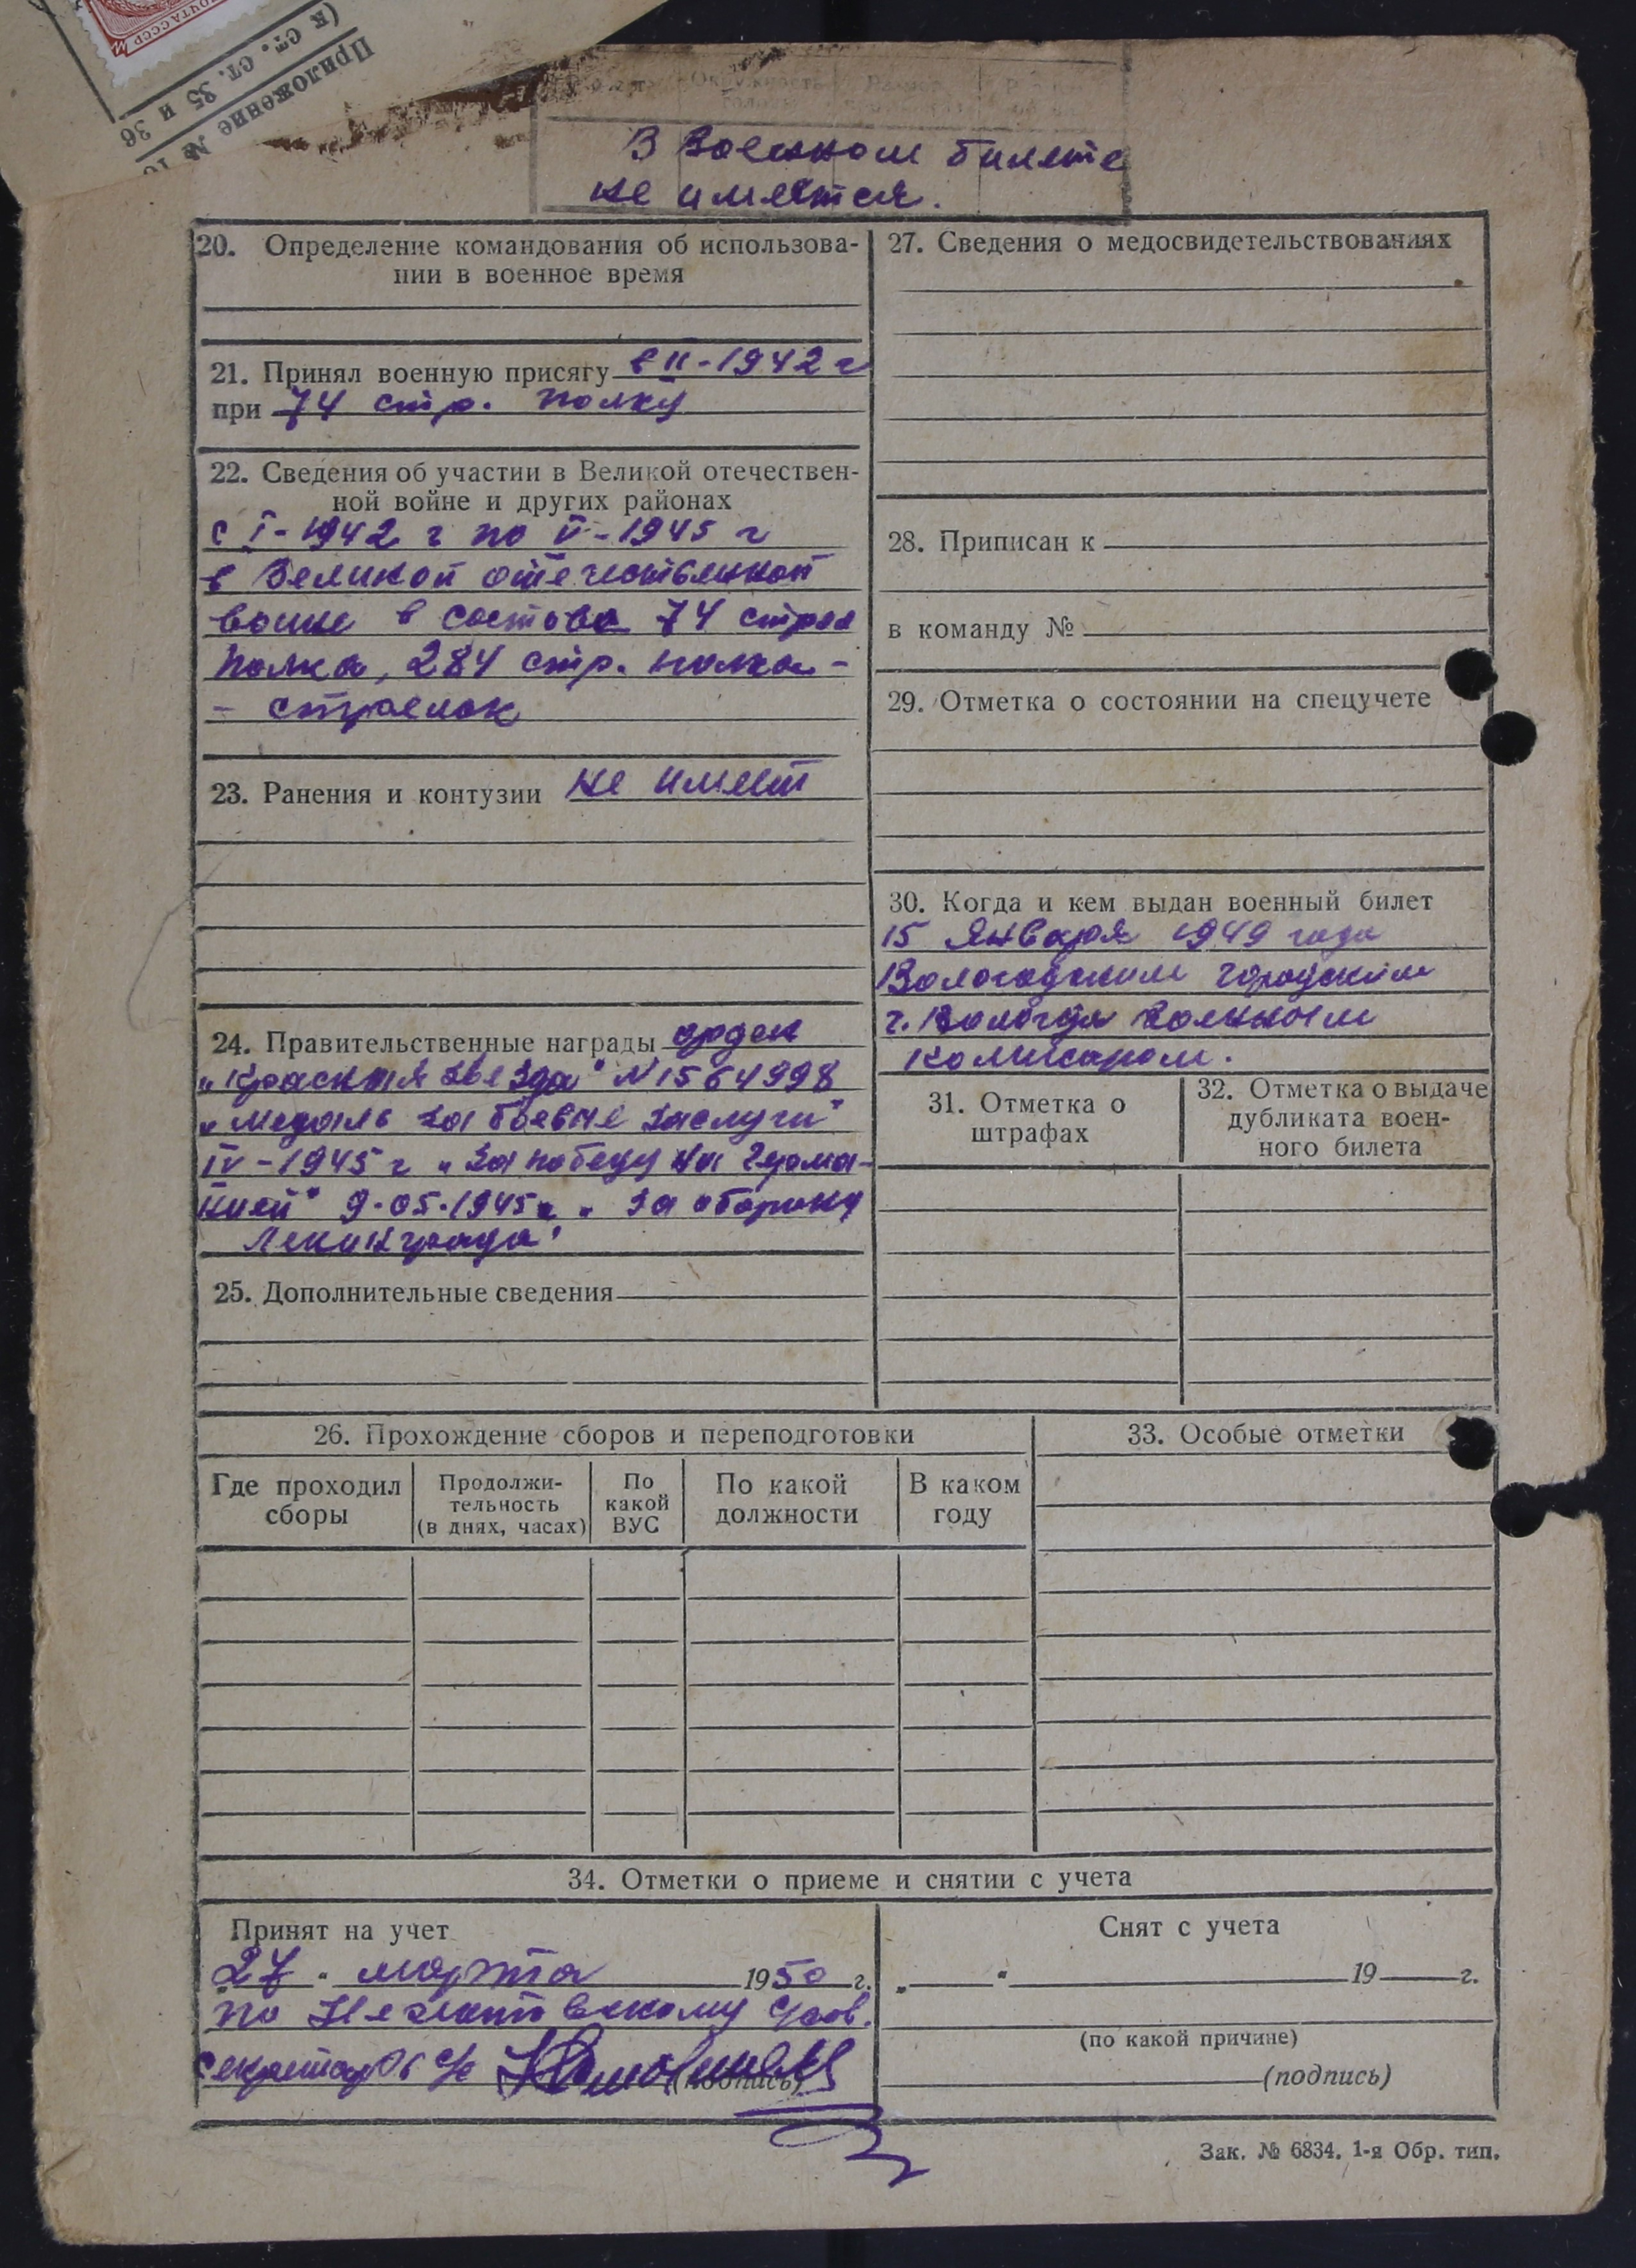 ПОЧТА СССР
Приложение №
(к ст. ст. 35 и 36
В Военном билете
не имеется.
20. Определение командования об использова-
нии в военное время
21. Принял военную присягу в II-1942 г
при 74 стр. полку
22. Сведения об участии в Великой отечествен-
ной войне и других районах
с I-1942 г по V-1945 г
в Великой отечественной
войне в составе 74 стрел
полка, 284 стр. полка -
- стрелок
23. Ранения и контузии не имеет
24. Правительственные награды орден
„Красная Звезда" N 1564998
„медаль за боевые заслуги"
IV-1945 г „За победу на Герма-
нией" 9.05.1945 г „За оборону
Ленинграда"
25. Дополнительные сведения
26. Прохождение сборов и переподготовки
Где проходил сборы
Продолжи-
тельность
(в днях, часах)
По какой ВУС
По какой должности
В каком году
27. Сведения о медосвидетельствованиях
28. Приписан к
в команду №
29. Отметка о состоянии на спецучете
30. Когда и кем выдан военный билет
15 Января 1949 года
Вологодским городским
г. Вологда военным
комисаром.
31. Отметка о
штрафах
32. Отметка о выдаче
дубликата воен-
ного билета
33. Особые отметки
34. Отметки о приеме и снятии с учета
Принят на учет
27 " марта 1950 г.
по
секретарь с/с
(подпись)
Снят с учета
„ " 19 г.
(по какой причине)
(подпись)
Зак. № 6834. 1-я Обр. тип.